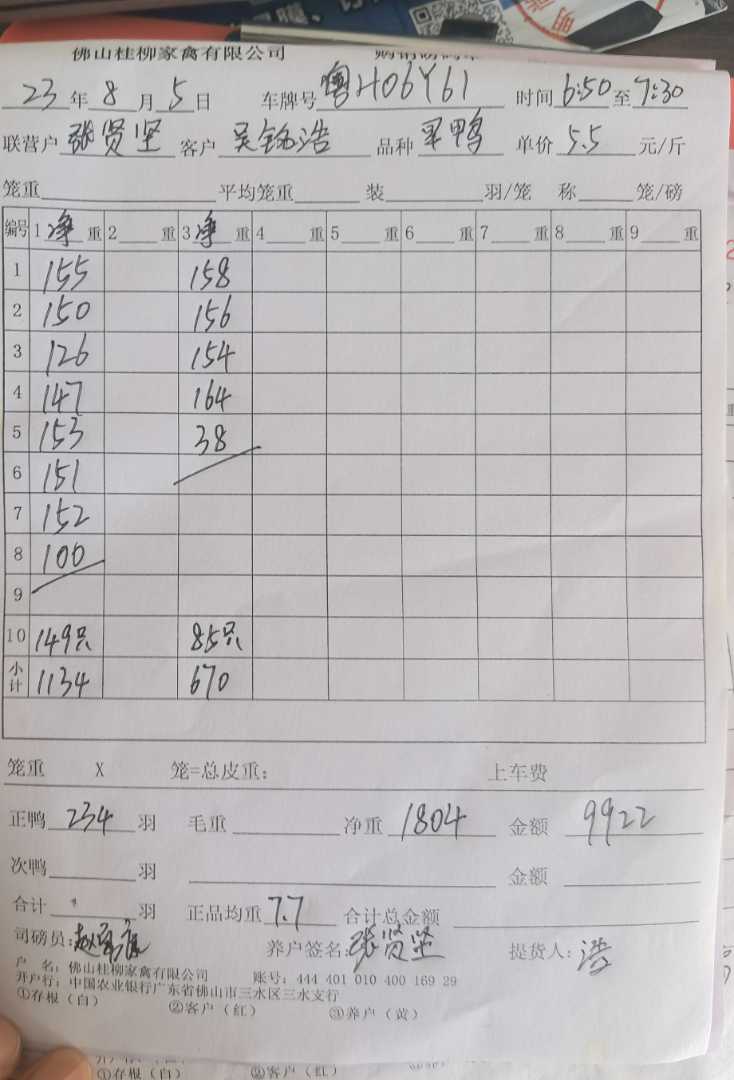 佛山桂柳家禽有限公司
23年8月5日 车牌号粤H06Y61 时间6:50至7:30
联营户张贤坚 客户吴铭浩 品种平鸭 单价5.5元/斤
笼重 平均笼重 装 羽/笼 称 笼/磅
编号 1净重 2 重 3净重 4 重 5 重 6 重 7 重 8 重 9 重
1 155 158
2 150 156
3 126 154
4 147 164
5 153 38
6 151
7 152
8 100
9
10 149只 85只
小计 1134 670
笼重 X 笼=总皮重: 上车费
正鸭 234 羽 毛重 净重 1804 金额 9922
次鸭 羽 金额
合计 羽 正品均重 7.7 合计总金额
司磅员: 养户签名: 张贤坚 提货人: 浩
户 名: 佛山桂柳家禽有限公司 账号: 444 401 010 400 169 29
开户行: 中国农业银行广东省佛山市三水区三水支行
①存根（白） ②客户（红） ③养户（黄）
①存根（白） ②客户（红）